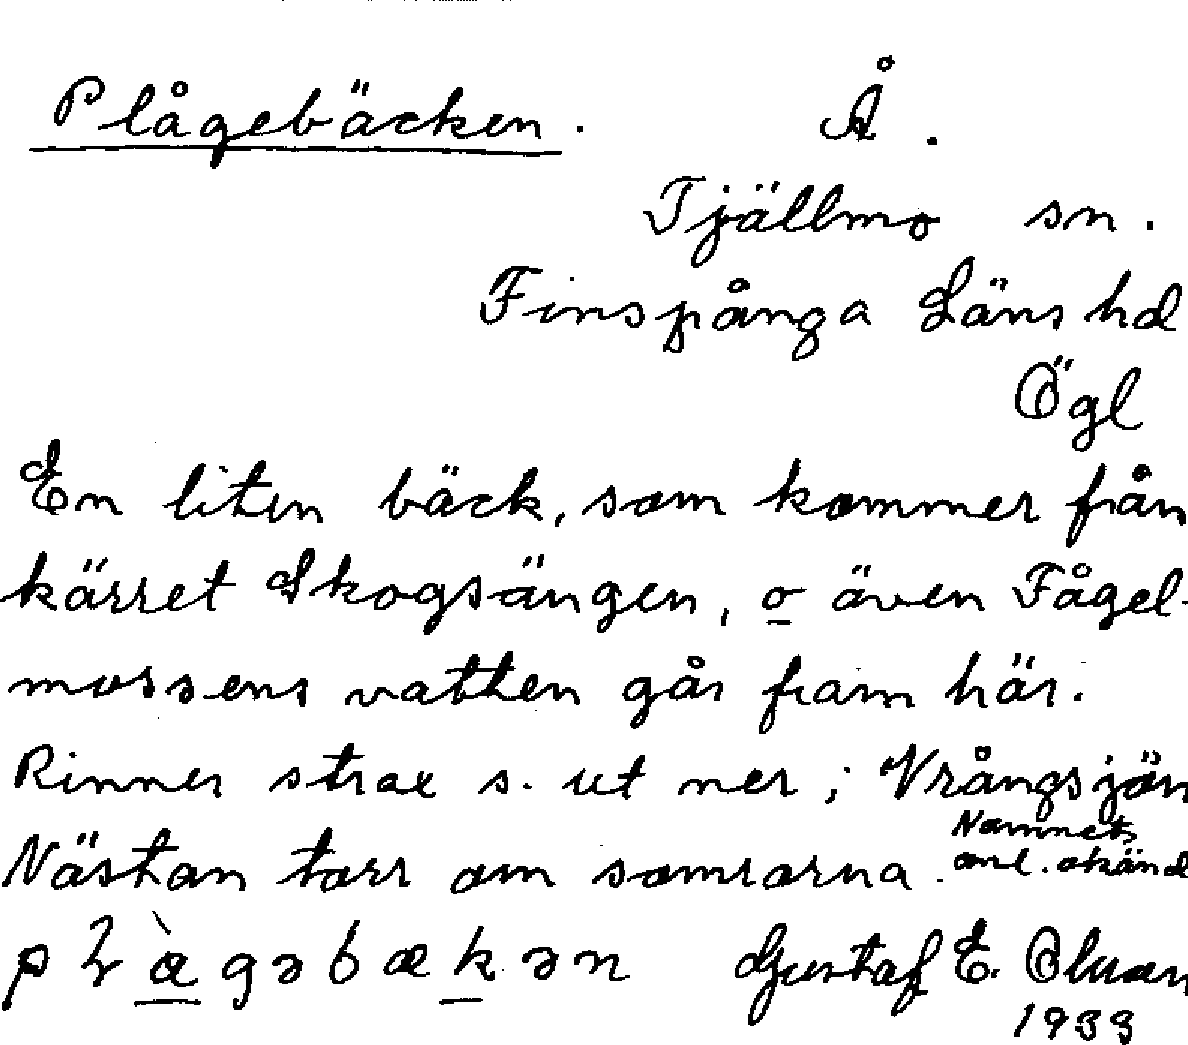 Plågebäcken. Å.
Tjällmo sn.
Finspånga Läns hd
Ögl
En liten bäck, som kommer från
kärret Skogsängen, o även Fågel-
mossens vatten går fram här.
Rinner strax s. ut ner i Vrångsjön
Namnets
Nästan torr om somrarna. anl. okänd
Gustaf E. Olsson
1933